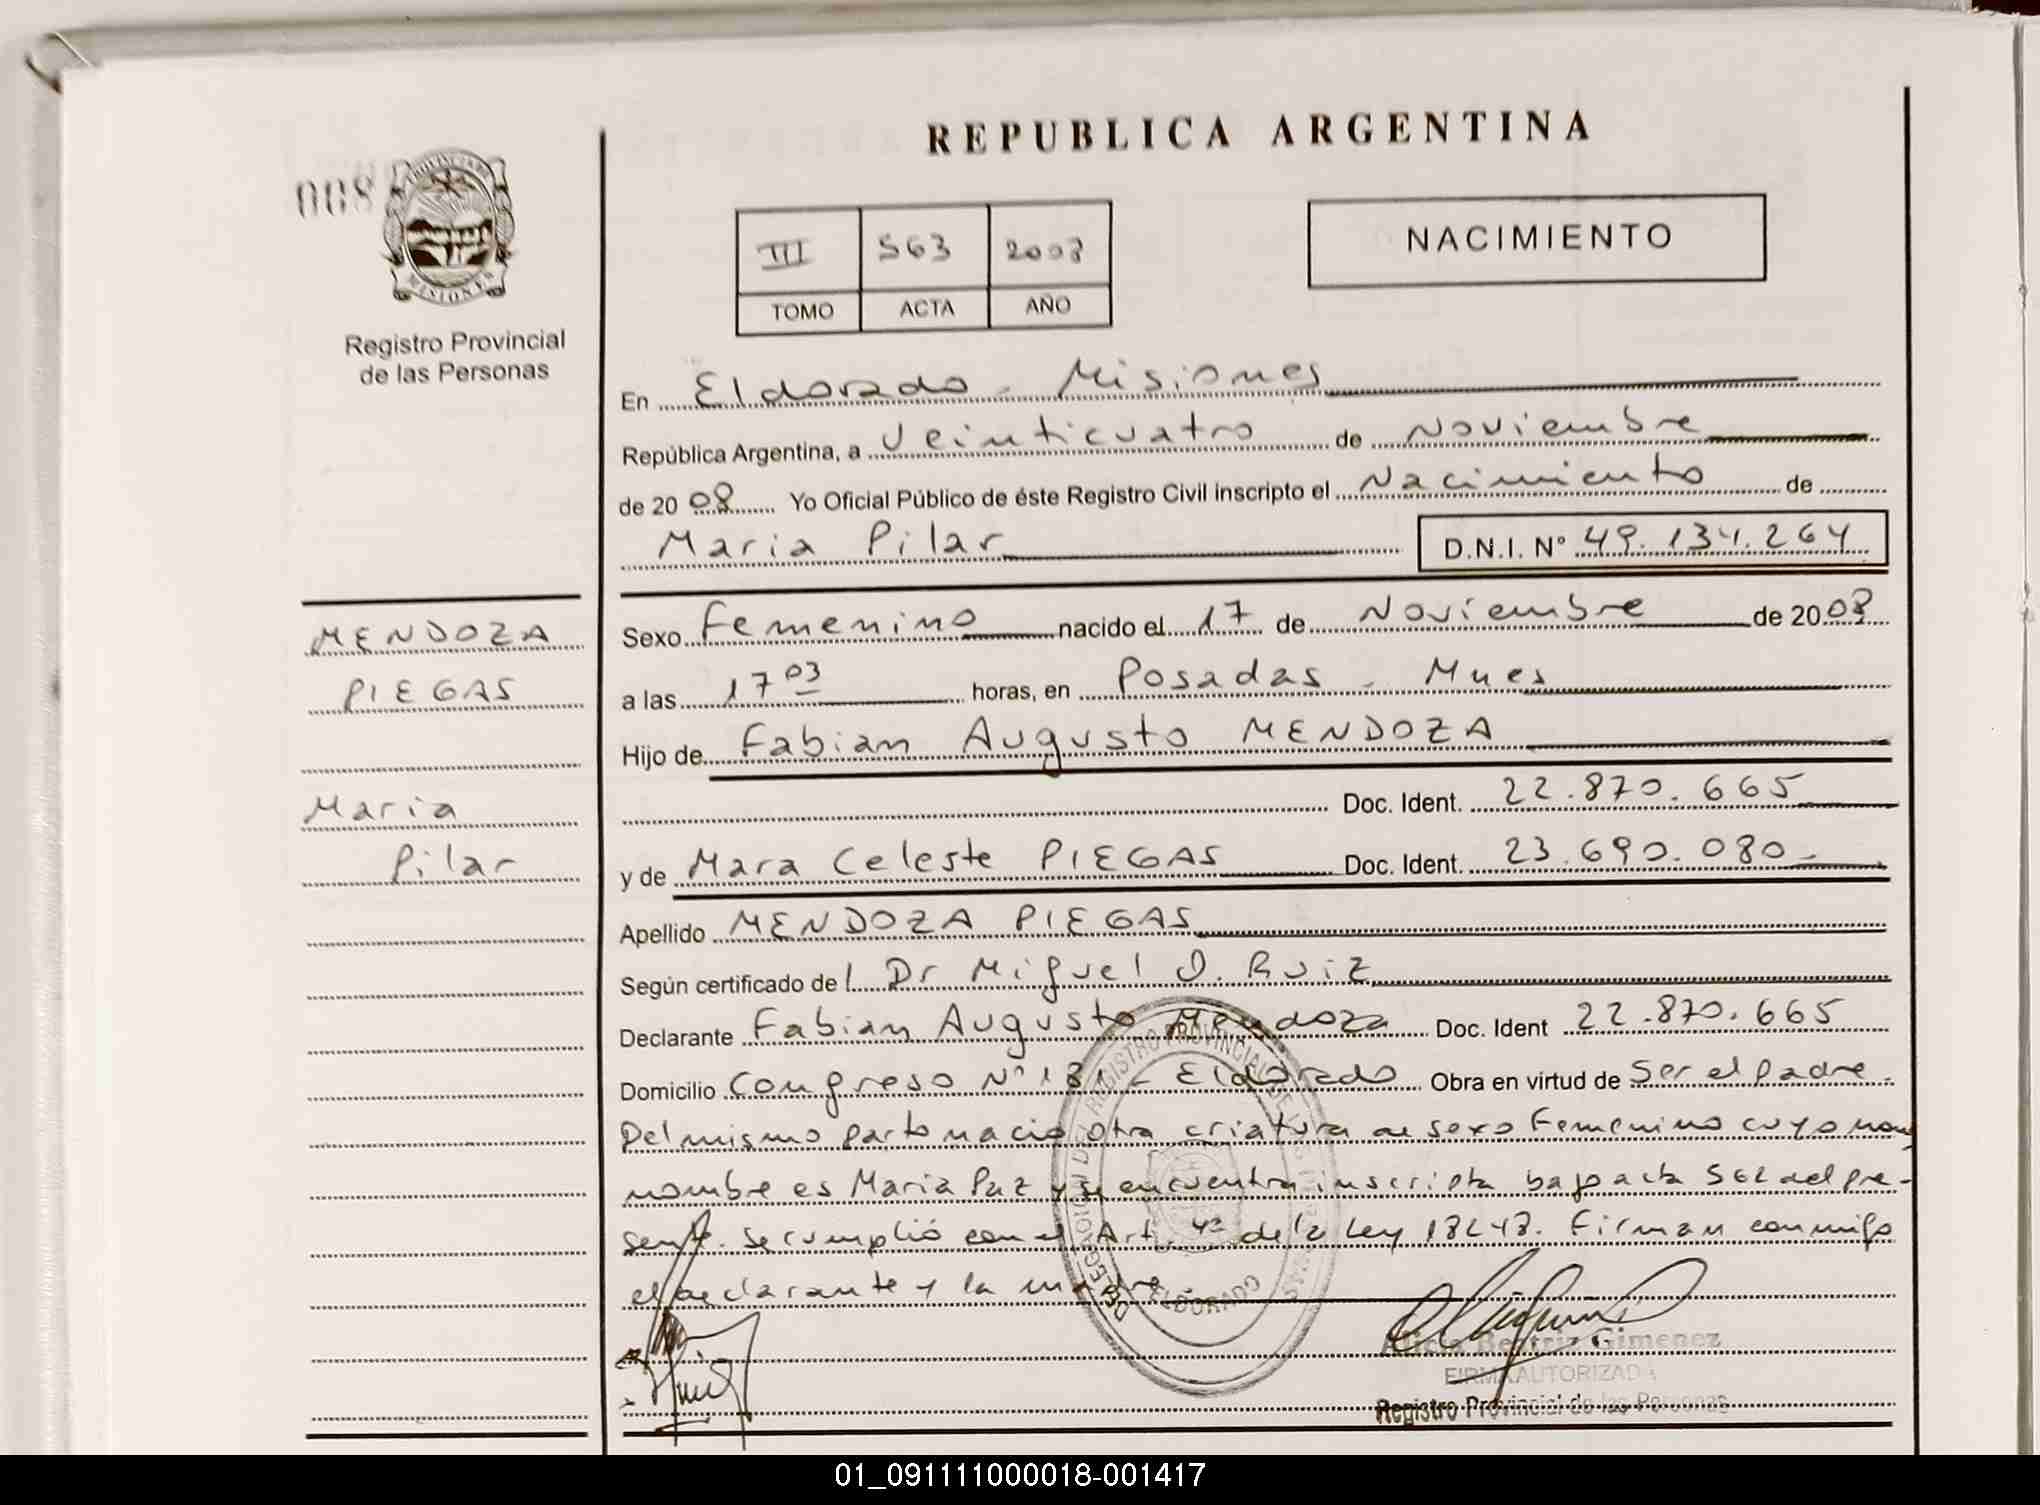 REPUBLICA ARGENTINA
008
PROVINCIA DE
MISIONES
Registro Provincial
de las Personas
III 563 2008
TOMO ACTA AÑO
NACIMIENTO
En Eldorado - Misiones
República Argentina, a Veinticuatro de Noviembre
de 2008 Yo Oficial Público de éste Registro Civil inscripto el Nacimiento de
Maria Pilar D.N.I. Nº 49.134.264
MENDOZA
PIEGAS
Maria
Pilar
Sexo Femenino nacido el 17 de Noviembre de 2008
a las 17 03 horas, en Posadas - Mnes
Hijo de Fabian Augusto MENDOZA
Doc. Ident. 22.870.665
y de Mara Celeste PIEGAS Doc. Ident. 23.690.080
Apellido MENDOZA PIEGAS
Según certificado de l Dr Miguel O. Ruiz
Declarante Fabian Augusto Mendoza Doc. Ident 22.870.665
Domicilio Congreso Nº 181 - Eldorado Obra en virtud de ser el padre.
Del mismo parto nacio otra criatura de sexo Femenino cuyo nom
nombre es Maria Paz y se encuentra inscripta bajo acta 562 del pre-
sente. Se cumplió con el Art. 4º de la Ley 18248. Firman conmigo
el declarante y la madre
DELEGACION DEL REGISTRO PROVINCIAL DE LAS PERSONAS
ELDORADO
Alicia Beatriz Gimenez
FIRMA AUTORIZADA
Registro Provincial de las Personas
01_091111000018-001417